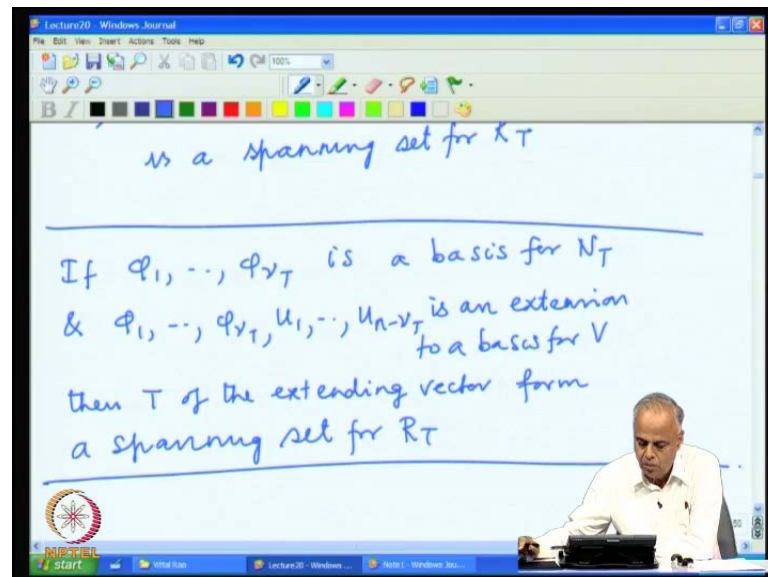 Lecture20 - Windows Journal
File Edit View Insert Actions Tools Help
100%
B I
is a spanning set for R_T
If φ₁, --, φ_{ν_T} is a basis for N_T
& φ₁, --, φ_{ν_T}, u₁, --, u_{n-ν_T} is an extension
to a basis for V
then T of the extending vector form
a spanning set for R_T
NPTEL
start Vittal Rao Lecture20 - Windows ... Note1 - Windows Jou...